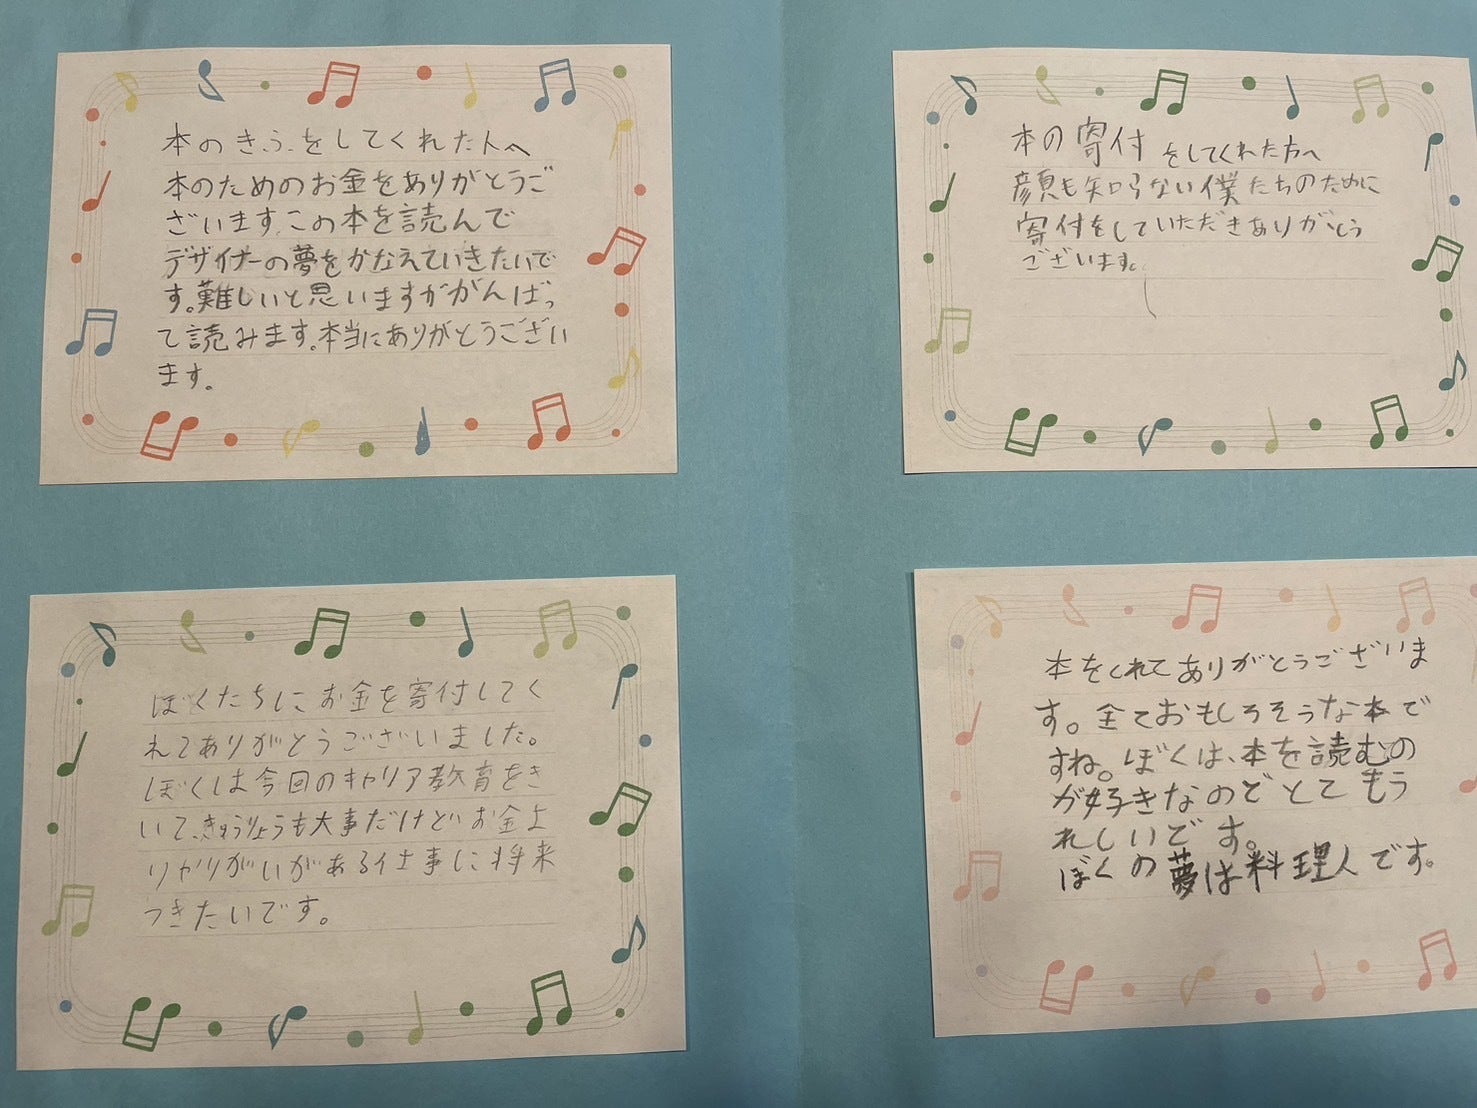 本のきふをしてくれた人へ
本のためのお金をありがとうご
ざいます。この本を読んで
デザイナーの夢をかなえていきたいで
す。難しいと思いますががんばっ
て読みます。本当にありがとうござい
ます。
本の寄付をしてくれた方へ
顔も知らない僕たちのために
寄付をしていただきありがとう
ございます。
ぼくたちにお金を寄付してく
れてありがとうございました。
ぼくは今回のキャリア教育をき
いて、きゅうりょうも大事だけど、お金よ
りやりがいがある仕事に将来
つきたいです。
本をくれてありがとうございま
す。全ておもしろそうな本で
すね。ぼくは、本を読むの
が好きなのでとてもう
れしいです。
ぼくの夢は料理人です。